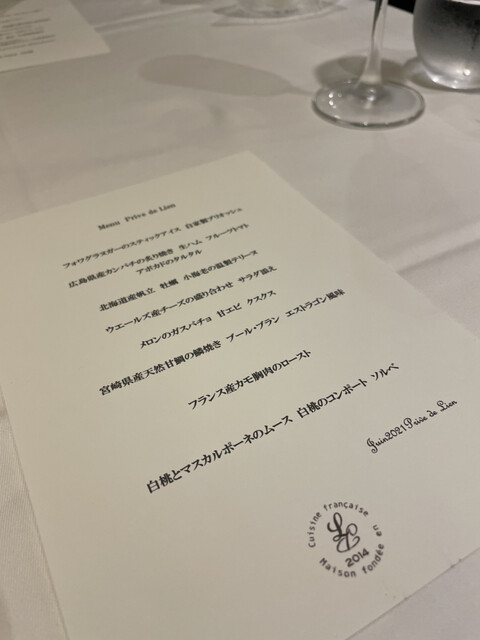 Menu Prive de Lien
フォワグラスガーのスティックアイス 自家製ブリオッシュ
広島県産カンパチの炙り焼き 生ハム フルーツトマト
アボカドのタルタル
北海道産帆立 牡蠣 小海老の温製テリーヌ
ウエールズ産チーズの盛り合わせ サラダ添え
メロンのガスパチョ 甘エビ クスクス
宮崎県産天然甘鯛の鱗焼き ブール・ブラン エストラゴン風味
フランス産カモ胸肉のロースト
白桃とマスカルポーネのムース 白桃のコンポート ソルベ
Juin2021Prive de Lien
Cuisine française
LP
2014
Maison fondée en